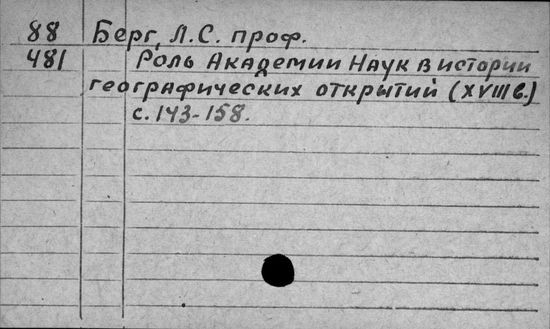 88 Берг, Л.С. проф.
481 Роль Академии Наук в истории
географических открытий (XVIII в.)
с. 143-158.